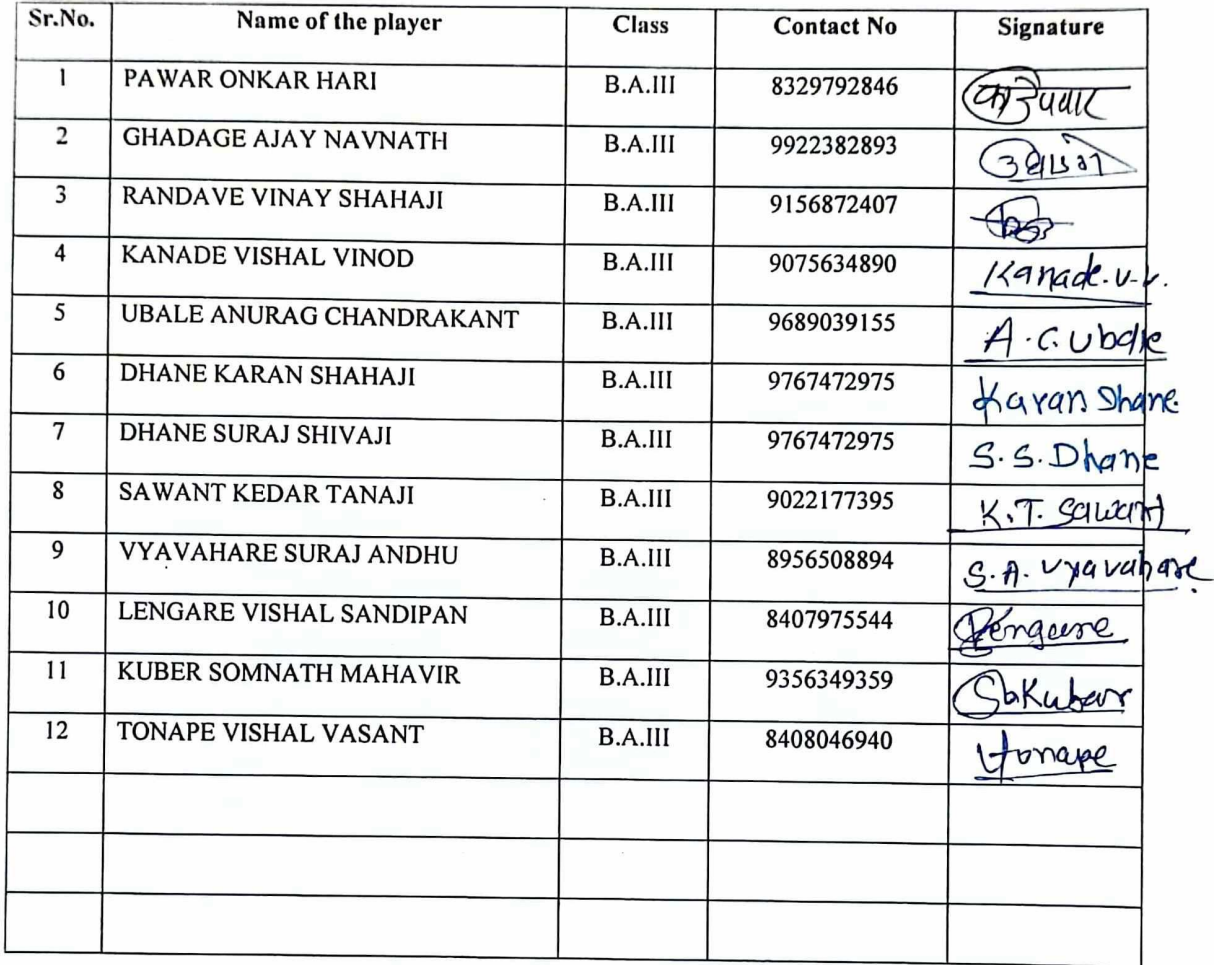 Sr.No. Name of the player Class Contact No Signature
1 PAWAR ONKAR HARI B.A.III 8329792846
2 GHADAGE AJAY NAVNATH B.A.III 9922382893
3 RANDAVE VINAY SHAHAJI B.A.III 9156872407
4 KANADE VISHAL VINOD B.A.III 9075634890 Kanade.v.v.
5 UBALE ANURAG CHANDRAKANT B.A.III 9689039155 A.C.Ubale
6 DHANE KARAN SHAHAJI B.A.III 9767472975 Karan Dhane
7 DHANE SURAJ SHIVAJI B.A.III 9767472975 S.S.Dhane
8 SAWANT KEDAR TANAJI B.A.III 9022177395 K.T. Sawant
9 VYAVAHARE SURAJ ANDHU B.A.III 8956508894 S.A. Vyavahare
10 LENGARE VISHAL SANDIPAN B.A.III 8407975544 Lengare
11 KUBER SOMNATH MAHAVIR B.A.III 9356349359
12 TONAPE VISHAL VASANT B.A.III 8408046940 Vtonape